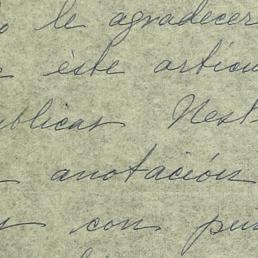 le agradecer
éste artícu
blicas Nest
anotación
con pun